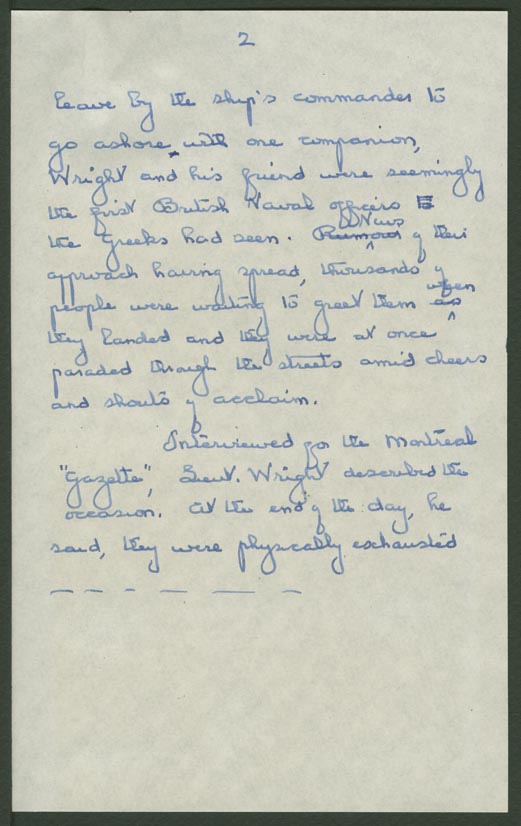 2
leave by the ship's commander to
go ashore, with one companion,
Wright and his friend were seemingly
the first British Naval officers
the Greeks had seen. Rumors News of their
approach having spread, thousands of
people were waiting to greet them as when
they landed and they were at once
paraded through the streets amid cheers
and shouts of acclaim.
Interviewed for the Montreal
"Gazette", Lieut. Wright described the
occasion. At the end of the day, he
said, they were physically exhausted
— — - — — —